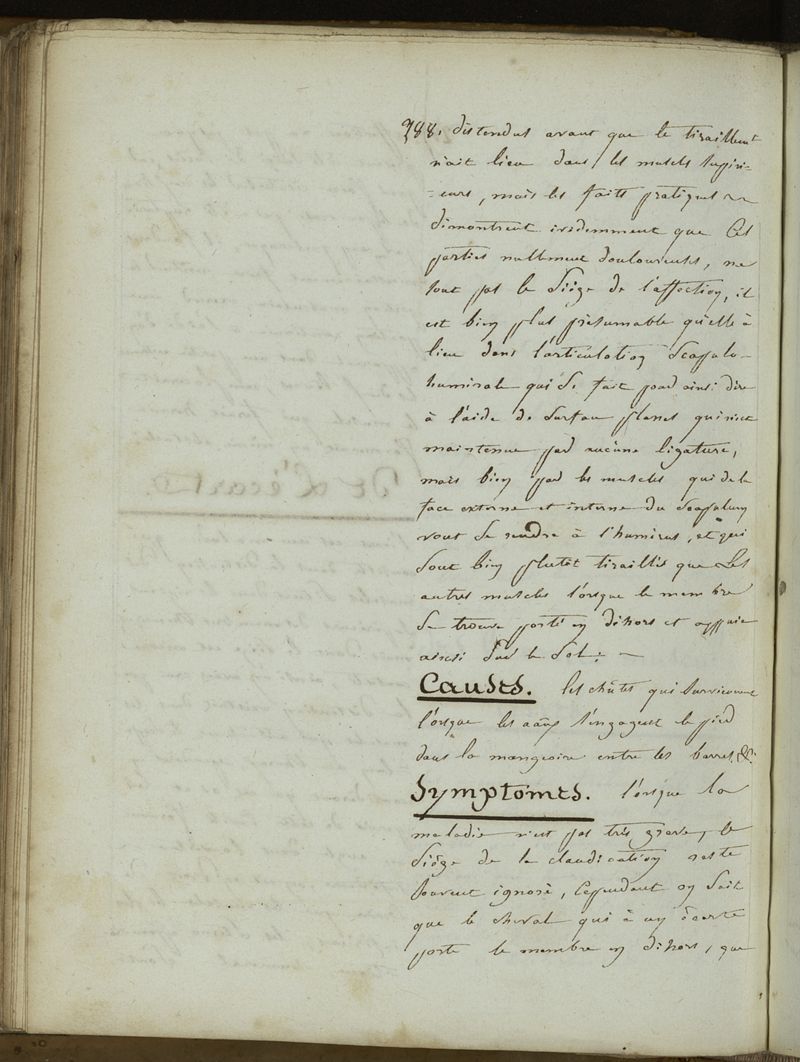 388. distendus avant que le tiraillement
n'ait lieu dans les muscles supéri-
-eurs, mais les faits pratiques
dimontrent evidemment que ces
parties nullement douloureuses, ne
sont pas le siège de l'affection, il
est bien plus présumable qu'elle à
lieu dans l'articulation scapulo-
humirale qui se fait pour ainsi dire
à l'aide de surface planes qui n'est
maintenue par aucune ligature,
mais bien par les muscles qui de la
face externe et interne du scapulum
vont se rendre à l'humérus, et qui
sont bien plutôt tiraillés que les
autres muscles lorsque le membre
se trouve porté en déhors et appuie
ainsi sur le sol: -
Causes. les chûtes qui surviennent
l'orsque les aães s'engagent le pied
dans la mangeoire entre les barres, &c.
Symptômes. l'orsque la
maladie n'est pas très grave, le
siège de la claudication reste
souvent ignoré, Cependant on sait
que le cheval qui à un écarte
porte le membre en déhors, que
De L'écart.